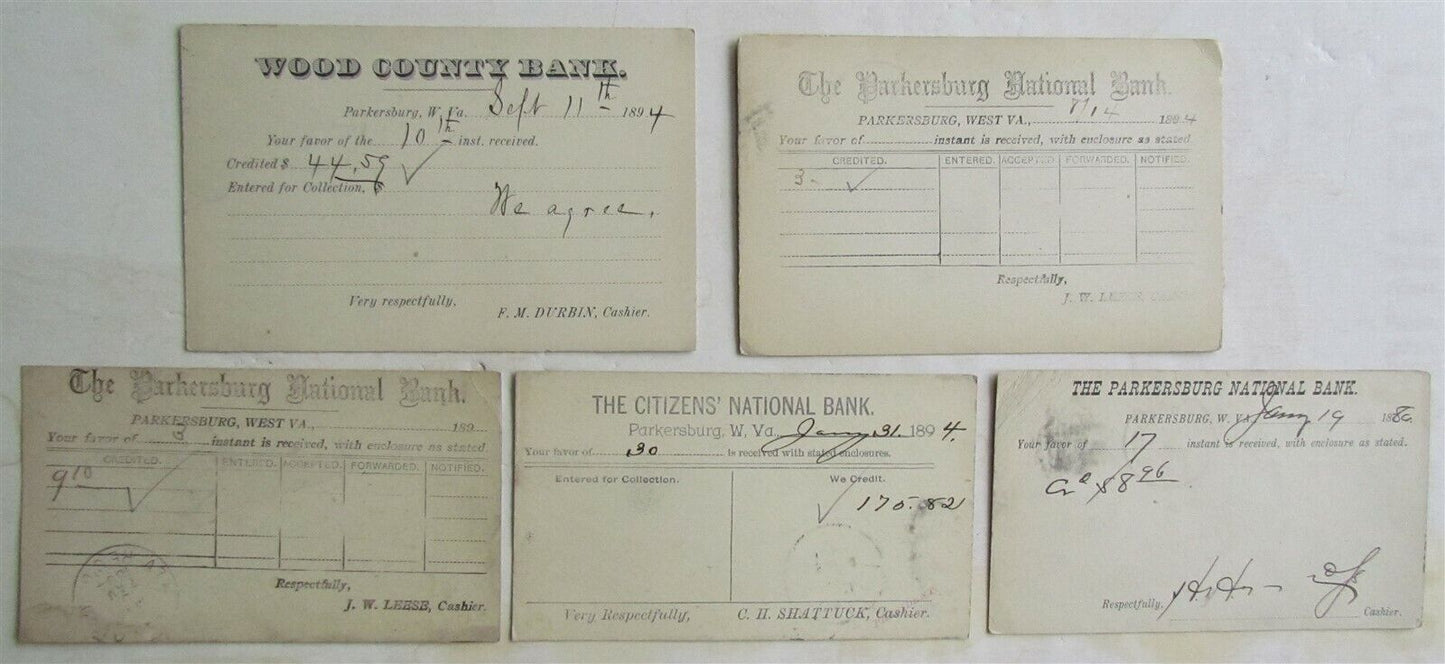 WOOD COUNTY BANK.
Parkersburg, W. Va. Sept 11th 1894
Your favor of the 10th inst. received.
Credited $ 44.59
Entered for Collection, $
We agree.
Very respectfully,
F. M. DURBIN, Cashier.
The Parkersburg National Bank.
PARKERSBURG, WEST VA., 1894
Your favor of instant is received, with enclosure as stated.
CREDITED. ENTERED. ACCEPTED. FORWARDED. NOTIFIED.
3-
Respectfully,
J. W. LEESE, Cashier.
The Parkersburg National Bank.
PARKERSBURG, WEST VA., 189
Your favor of 3 instant is received, with enclosure as stated.
CREDITED. ENTERED. ACCEPTED. FORWARDED. NOTIFIED.
9 10
Respectfully,
J. W. LEESE, Cashier.
THE CITIZENS' NATIONAL BANK.
Parkersburg, W. Va. Jany 31. 1894.
Your favor of 30 is received with stated enclosures.
Entered for Collection. We Credit.
175.82
Very Respectfully, C. H. SHATTUCK, Cashier.
THE PARKERSBURG NATIONAL BANK.
PARKERSBURG, W. VA. Jany 19 188
Your favor of 17 instant is received, with enclosure as stated.
$8 96
Respectfully,
Cashier.